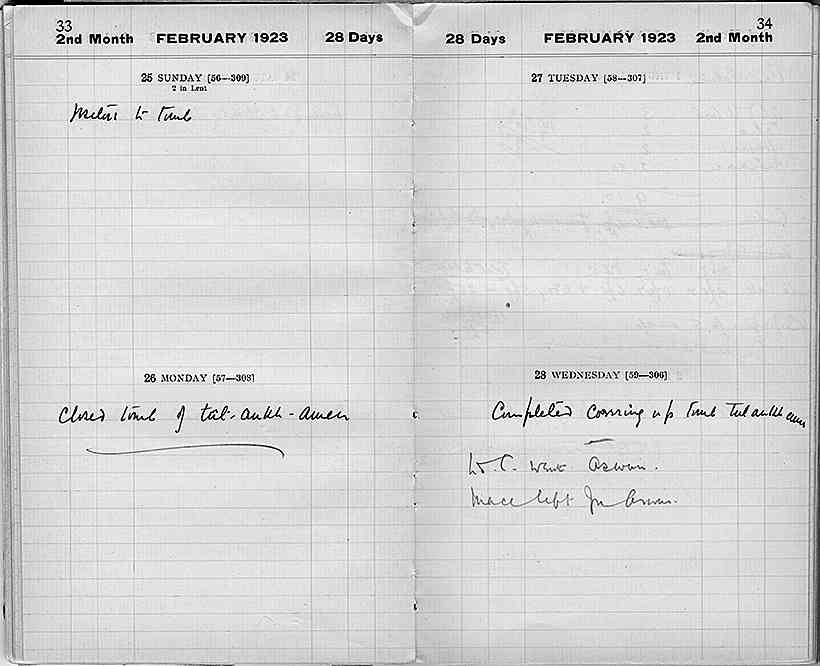 33
2nd Month FEBRUARY 1923 28 Days
25 SUNDAY [56—309]
2 in Lent
Visitors to Tomb
26 MONDAY [57—308]
Closed tomb of Tut-ankh-amen
34
28 Days FEBRUARY 1923 2nd Month
27 TUESDAY [58—307]
28 WEDNESDAY [59—306]
Completed covering up tomb Tutankhamen
Ld. C. went Aswan.
Mace left for Aswan.